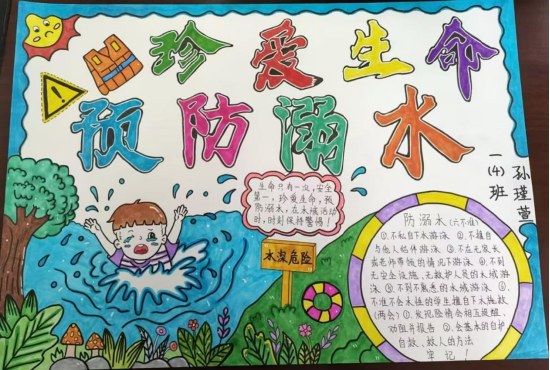 珍爱生命
预防溺水
一(4)班
孙瑾萱
生命只有一次,安全
第一,珍爱生命,预
防溺水,在水域活动
时,时刻保持警惕!
水深危险
防溺水(六不准)
①.不私自下水游泳 ②.不擅自
与他人结伴游泳 ③.不在无家长
或老师带领的情况下游泳 ④.不到
无安全设施、无救护人员的水域游
泳 ⑤.不到不熟悉的水域游泳 ⑥.
不准不会水性的学生擅自下水施救
(两会)①.发现险情会相互提醒、
劝阻并报告 ②.会基本的自护
自救、救人的方法
牢记!